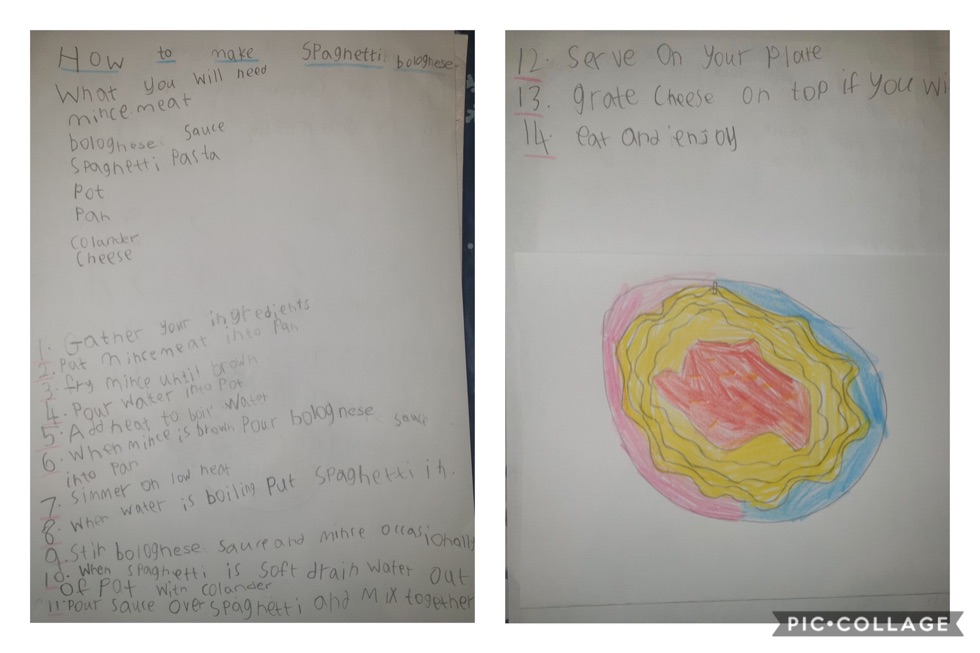 How to make Spaghetti bolognese
What you will need
mince meat
bolognese sauce
Spaghetti Pasta
Pot
Pan
Colander
Cheese
1. Gather your ingredients
2. Put mincemeat into Pan
3. fry mince until brown
4. Pour water into Pot
5. Add heat to boil water
6. When mince is brown Pour bolognese sauce
into Pan
7. Simmer on low heat
8. When water is boiling Put Spaghetti in.
9. Stir bolognese sauce and mince occasionally
10. When Spaghetti is soft drain water out
of Pot with colander
11. Pour sauce over spaghetti and mix together
12. Serve on your plate
13. grate cheese on top if you wi
14. eat and enjoy
PIC•COLLAGE